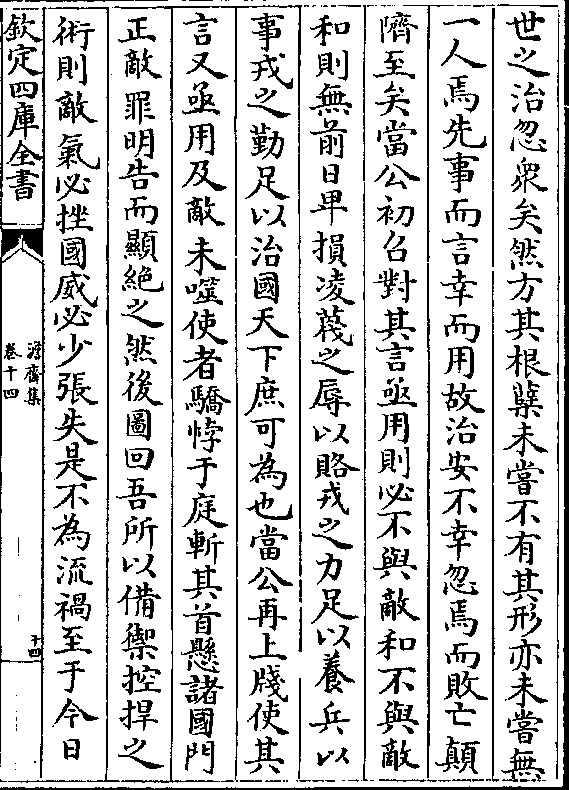 世之治忽衆矣然方其根櫱未嘗不有其形亦未嘗無
一人焉先事而言幸而用故治安不幸忽焉而敗亡顛
隮至矣當公初召對其言亟用則必不與敵和不與敵
和則無前日卑損凌蔑之辱以賂戎之力足以養兵以
事戎之勤足以治國天下庶可為也當公再上牋使其
言又亟用及敵未噬使者驕悖于庭斬其首懸諸國門
正敵罪明告而顯絶之然後圖回吾所以備禦控捍之
術則敵氣必挫國威必少張失是不為流禍至于今日
欽定四庫全書
澹齋集
卷十四
十四